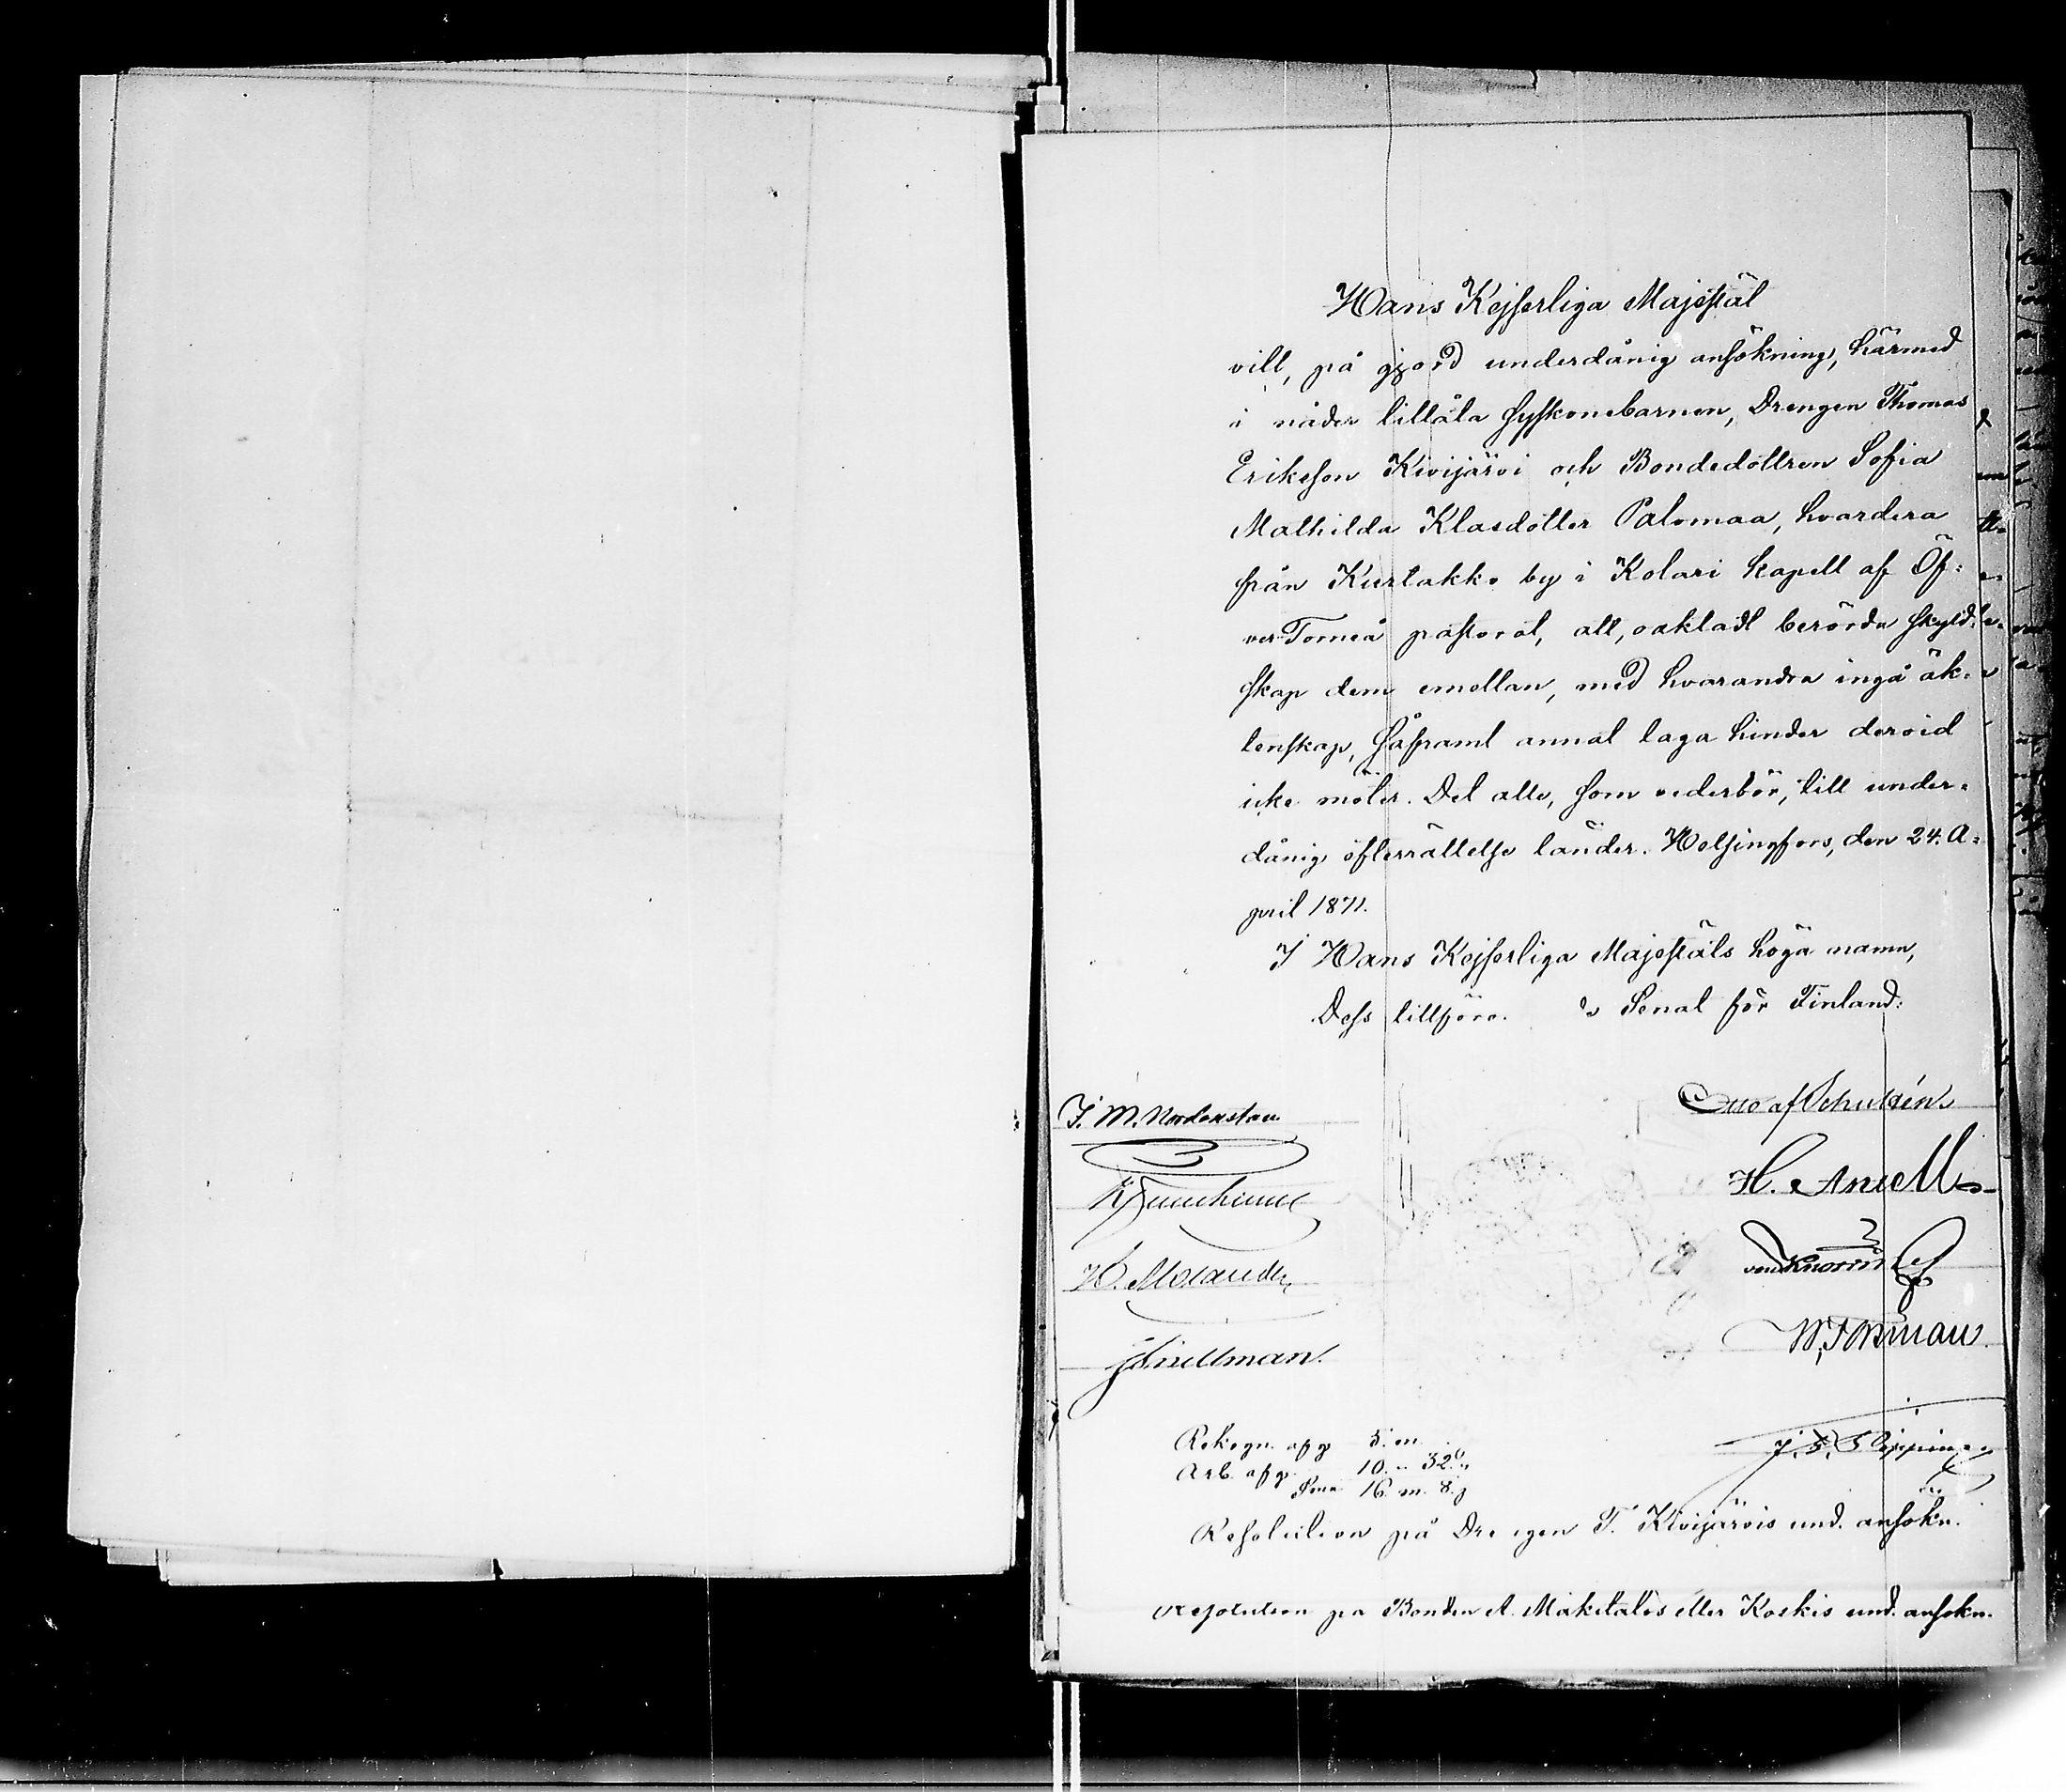 Hans Kejserliga Majestät
vill, på gjord underdånig ansökning, härmed
i nåder tillåta syskonebarnen, Drengen Thomas
Eriksson Kivijärvi och Bondedottren Sofia
Mathilda Klasdotter Palomaa, hvardera
från Kurtakko by i Kolari kapell af Öf-
ver Torneå pastorat, att, oaktadt berörda skyld-
skap dem emellan, med hvarandra ingå äk-
tenskap, såframt annat laga hinder dervid
icke möter. Det alle, som vederbör, till under-
dånig efterrättelse länder. Helsingfors, den 24. A-
pril 1871.
I Hans Kejserliga Majestäts höga namn,
Dess tillföro. Senat för Finland:
J. M. Nordenstam
Otto af Schultén
H. Antell
H. Molander
von Knorring
J Snellman.
Rekogn. afg 5. m
Arb. afg. 10. " 32.
Sma 16. m. 8. p
Resolution på Drengen T. Kivijärvis und. ansökn.
Resolution på Bonden A. Mäkitalos eller Koskis und. ansökn.